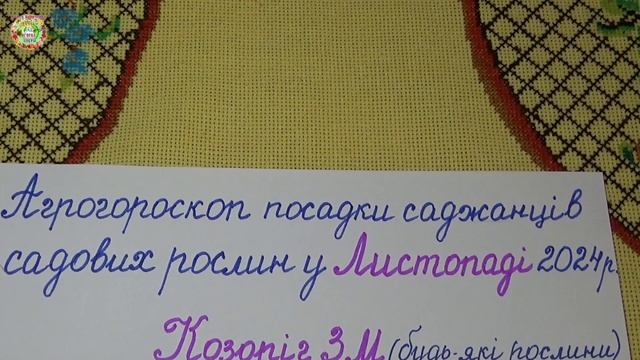 Агрогороскоп посадки саджанців
садових рослин у Листопаді 2024р.
Козоріг З.М (будь-які рослини)